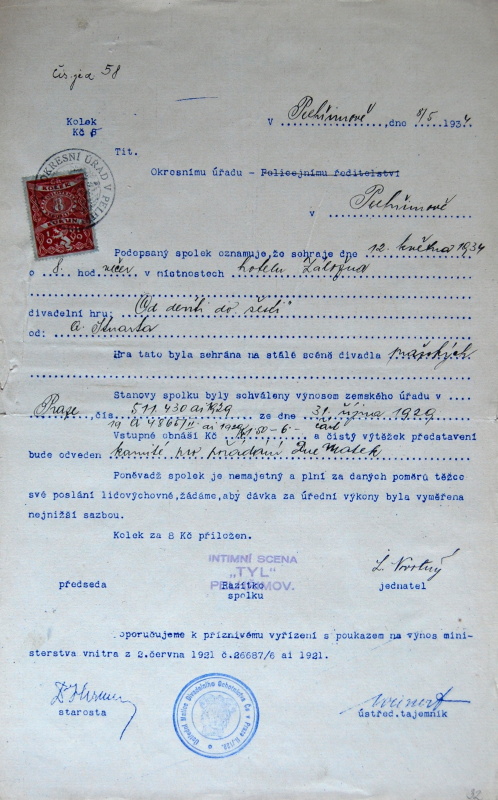 58
Kolek
Kč 5
V Pelhřimově, dne 8/5 1934
Tit.
Okresnímu úřadu - Policejnímu ředitelství
v Pelhřimově
OKRESNÍ ÚŘAD V PELH
KOLEK
8
KORUN
Podepsaný spolek oznamuje, že sehraje dne 12. května 1934
o 8. hod. večer v místnostech hotelu Záložna
divadelní hru: Od devíti do šesti
od: A. Stuarta
Hra tato byla sehrána na stálé scéně divadla pražských
Stanovy spolku byly schváleny výnosem zemského úřadu v
Praze čís. 511.430 ai 1929 ze dne 31. října 1929
Vstupné obnáší Kč 1·50 - 6·- a čistý výtěžek představení
bude odveden komité pro pořádání Dne Matek
Poněvadž spolek je nemajetný a plní za daných poměrů těžce
své poslání lidovýchovné, žádáme, aby dávka za úřední výkony byla vyměřena
nejnižší sazbou.
Kolek za 8 Kč přiložen.
INTIMNÍ SCENA
„TYL"
PELHŘIMOV.
L. Novotný
předseda Razítko jednatel
spolku
Doporučujeme k příznivému vyřízení s poukazem na výnos mini-
sterstva vnitra z 2. června 1921 č. 26687/6 ai 1921.
starosta ústřed. tajemník
Ústřední Matice Divadelního Ochotnictva Čs v Praze